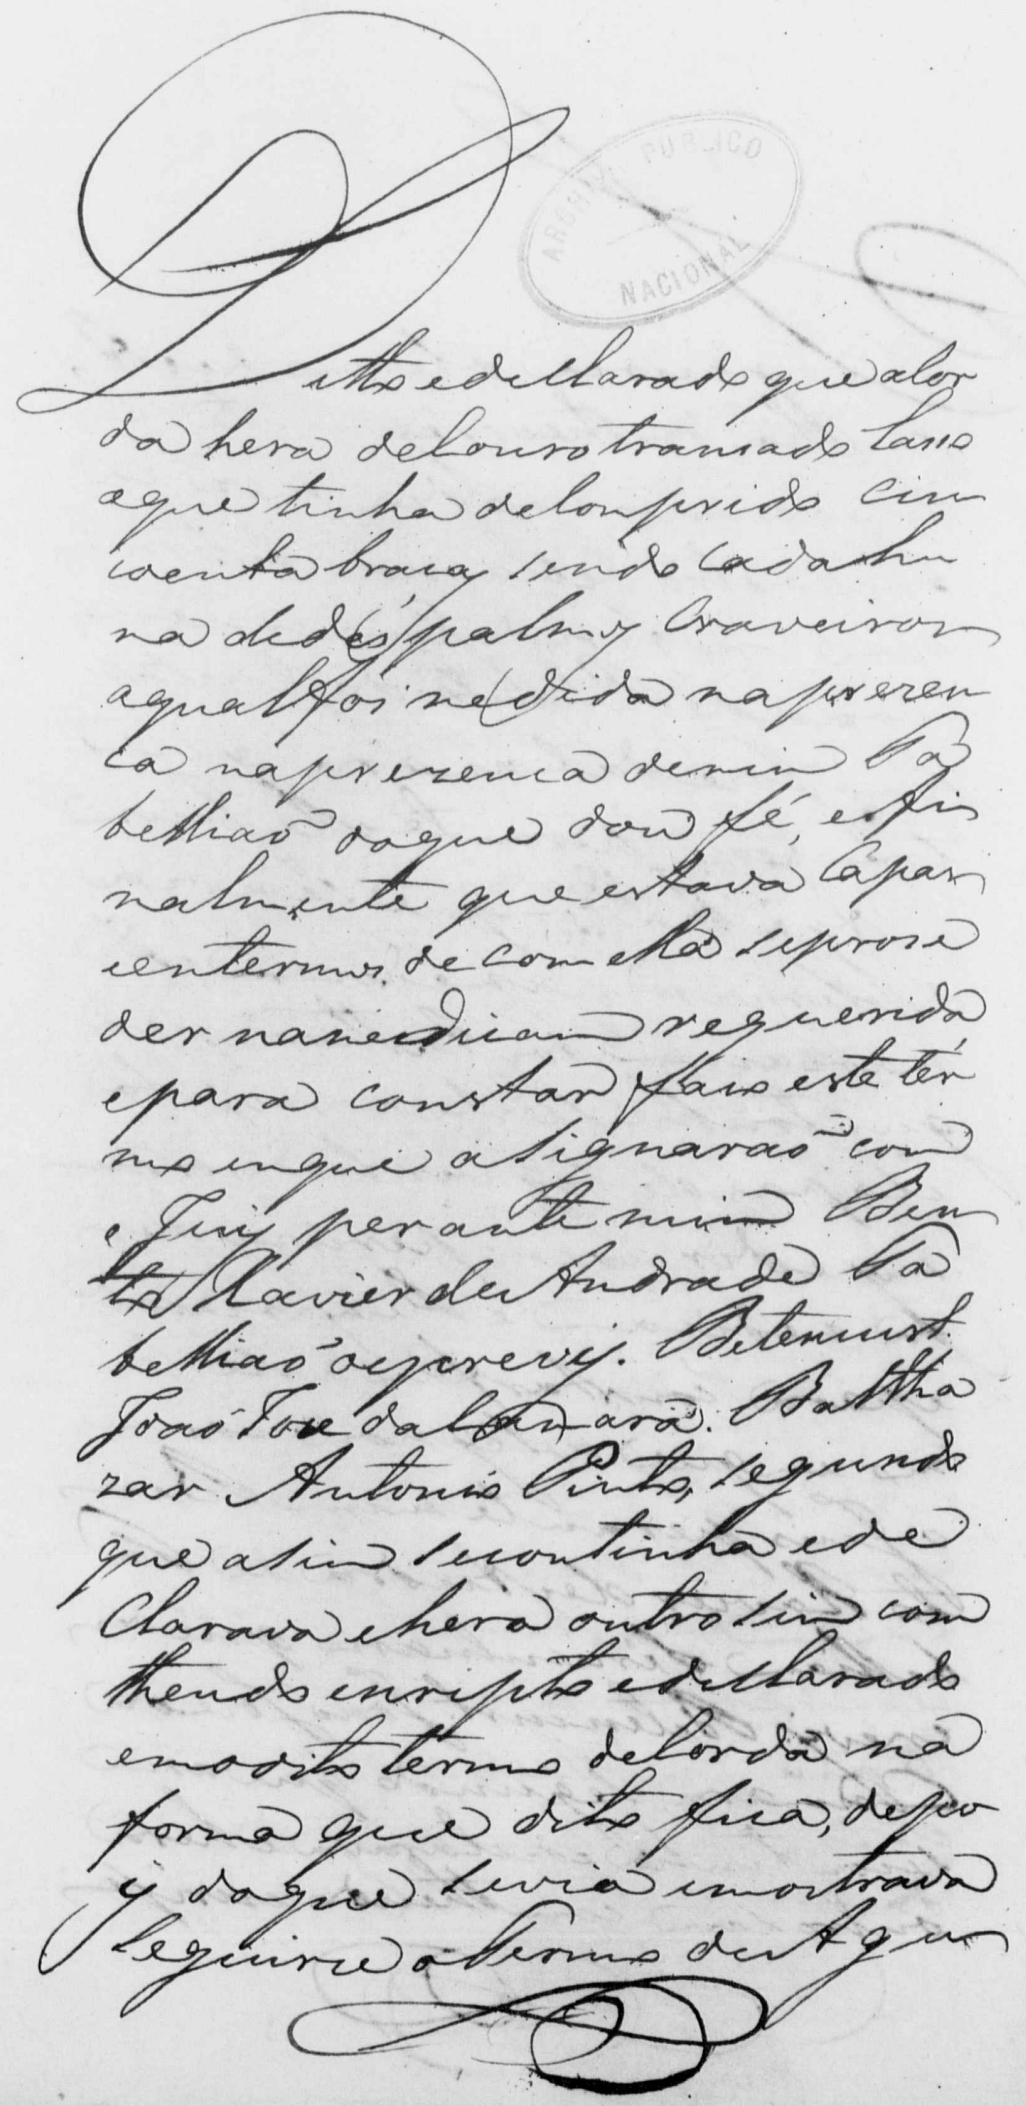 ARCHIVO PUBLICO NACIONAL
Ditto e declarado que a cor
da hera de Couro trançado Casso
e que tinha de comprido cin
coenta braças sendo cada hu
ma de dés palmos Craveiros
a qual foi medida na prezen
ca na prezenca de mim Ta
bellião do que dou fé, e fi
nalmente que estava Capas
em termos de com ella se proce
der na medicam requerida
e para constar faço este ter
mo em que asignarão com
o Juiz perante mim Ben
to Xavier de Andrade Ta
bellião o escrevy. Betencurt.
João Jose da Camara. Baltha
zar Antonio Pinto, segundo
que asim se continha e de
Clarava e hera outro sim com
theudo escripto e declarado
em o dito termo de Corda na
forma que dito fica, depo
is do que se via e mostrava
seguirse o Termo de Agu